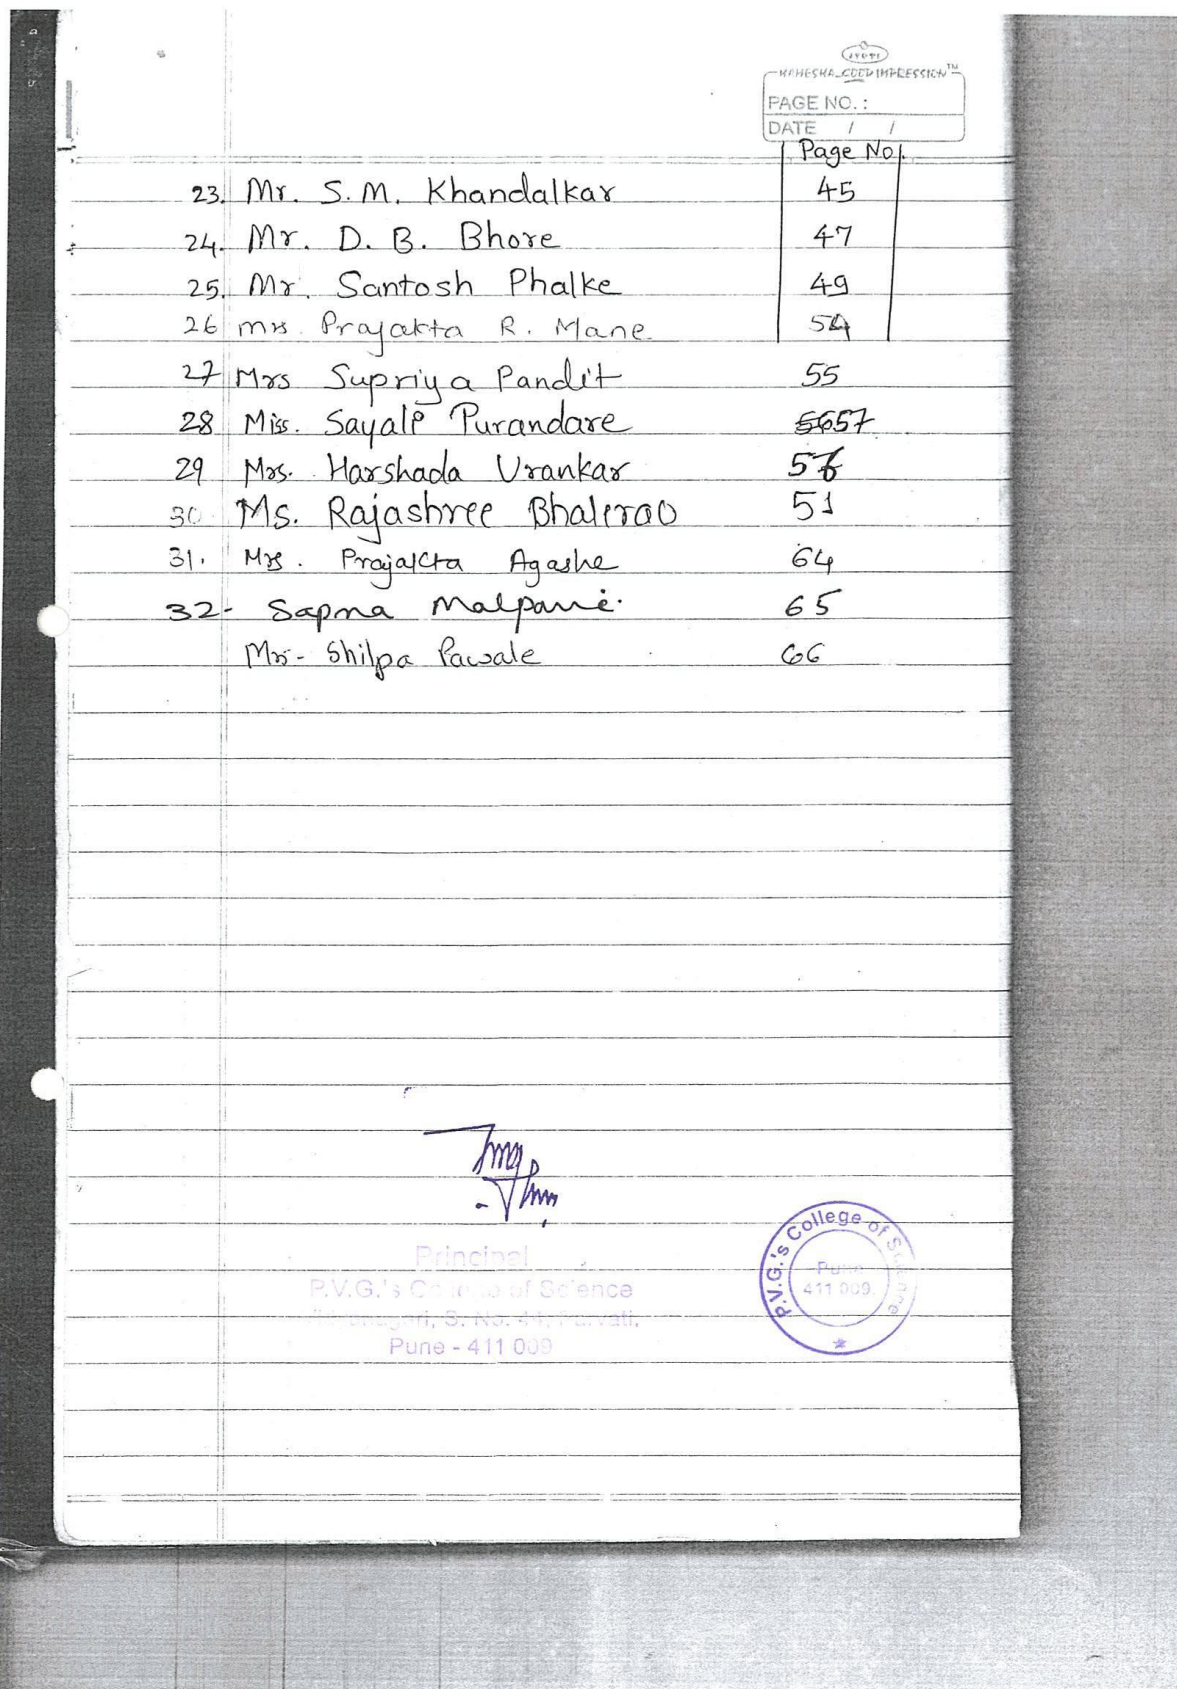 JYOTI
MAHESHA GOOD IMPRESSION™
PAGE NO. :
DATE / /
Page No.
23. Mr. S.M. Khandalkar 45
24. Mr. D. B. Bhore 47
25. Mr. Santosh Phalke 49
26 mrs Prajakta R. Mane 54
27 Mrs Supriya Pandit 55
28 Miss. Sayali Purandare 57
29 Mrs. Harshada Urankar
30 Ms. Rajashree Bhalerao 51
31. Mrs. Prajakta Agashe 64
32- Sapna Malpani. 65
Mrs- Shilpa Pawale 66
Principal
P.V.G.'s College of Science
S. No. 44, Parvati,
Pune - 411 009
P.V.G.'s College of Science
Pune
411 009.